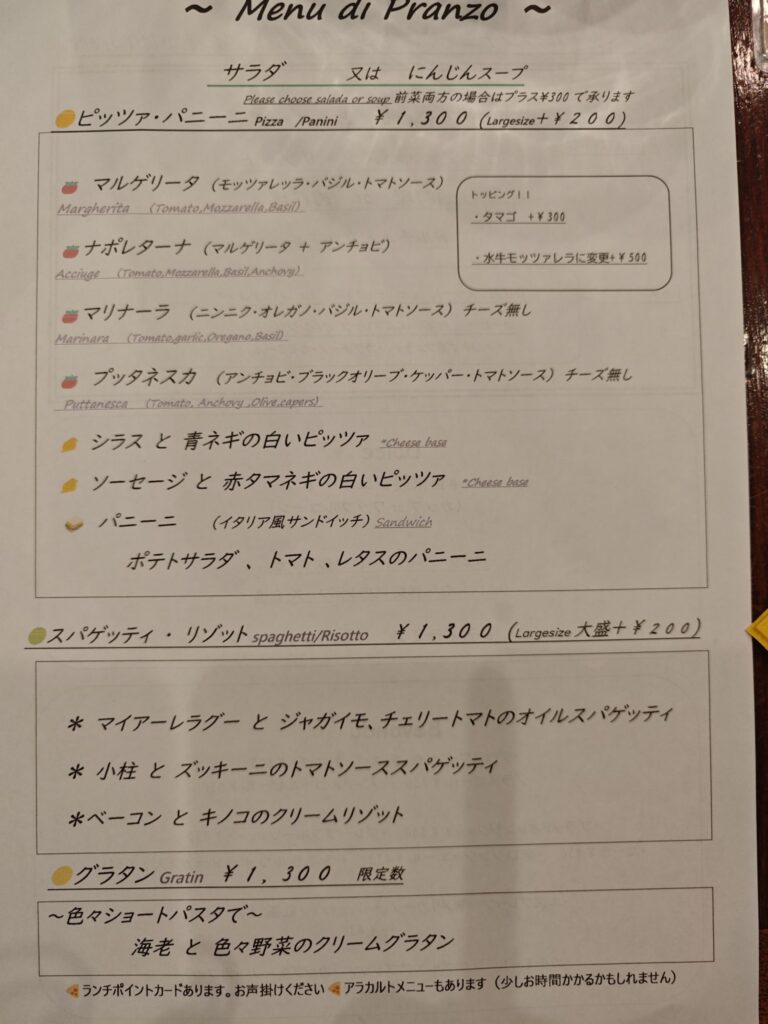 ~ Menu di Pranzo ~
サラダ 又は にんじんスープ
Please choose salada or soup 前菜両方の場合はプラス¥300 で承ります
ピッツァ・パニーニ Pizza /Panini ¥1,300 (Largesize+¥200)
マルゲリータ (モッツァレッラ・バジル・トマトソース)
Margherita (Tomato,Mozzarella,Basil)
トッピング!!
・タマゴ +¥300
・水牛モッツァレラに変更+¥500
ナポレターナ (マルゲリータ + アンチョビ)
Acciuge (Tomato,Mozzarella,Basil,Anchovy)
マリナーラ (ニンニク・オレガノ・バジル・トマトソース) チーズ無し
Marinara (Tomato,garlic,Oregano,Basil)
プッタネスカ (アンチョビ・ブラックオリーブ・ケッパー・トマトソース) チーズ無し
Puttanesca (Tomato, Anchovy ,Olive,capers)
シラス と 青ネギの白いピッツァ *Cheese base
ソーセージ と 赤タマネギの白いピッツァ *Cheese base
パニーニ (イタリア風サンドイッチ) Sandwich
ポテトサラダ 、トマト 、レタスのパニーニ
スパゲッティ ・ リゾット spaghetti/Risotto ¥1,300 (Largesize 大盛+¥200)
* マイアーレラグー と ジャガイモ、チェリートマトのオイルスパゲッティ
* 小柱 と ズッキーニのトマトソーススパゲッティ
*ベーコン と キノコのクリームリゾット
グラタン Gratin ¥1,300 限定数
~色々ショートパスタで~
海老 と 色々野菜のクリームグラタン
ランチポイントカードあります。お声掛けください アラカルトメニューもあります (少しお時間かかるかもしれません)